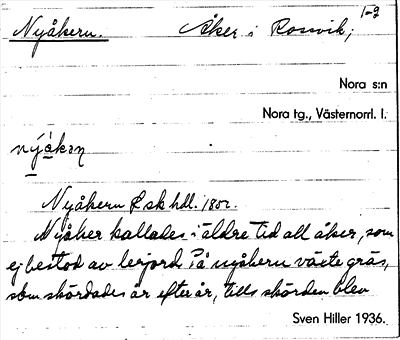 Nyåkern. Åker i Rossvik; 1-2
Nora s:n
Nora tg., Västernorrl. l.
nýåkɜṇ
Nyåkern Lsk hdl. 1850.
Nyåker kallades i äldre tid all åker, som
ej bestod av lerjord. På nyåkern växte gräs,
som skördades år efter år, tills skörden blev
Sven Hiller 1936.